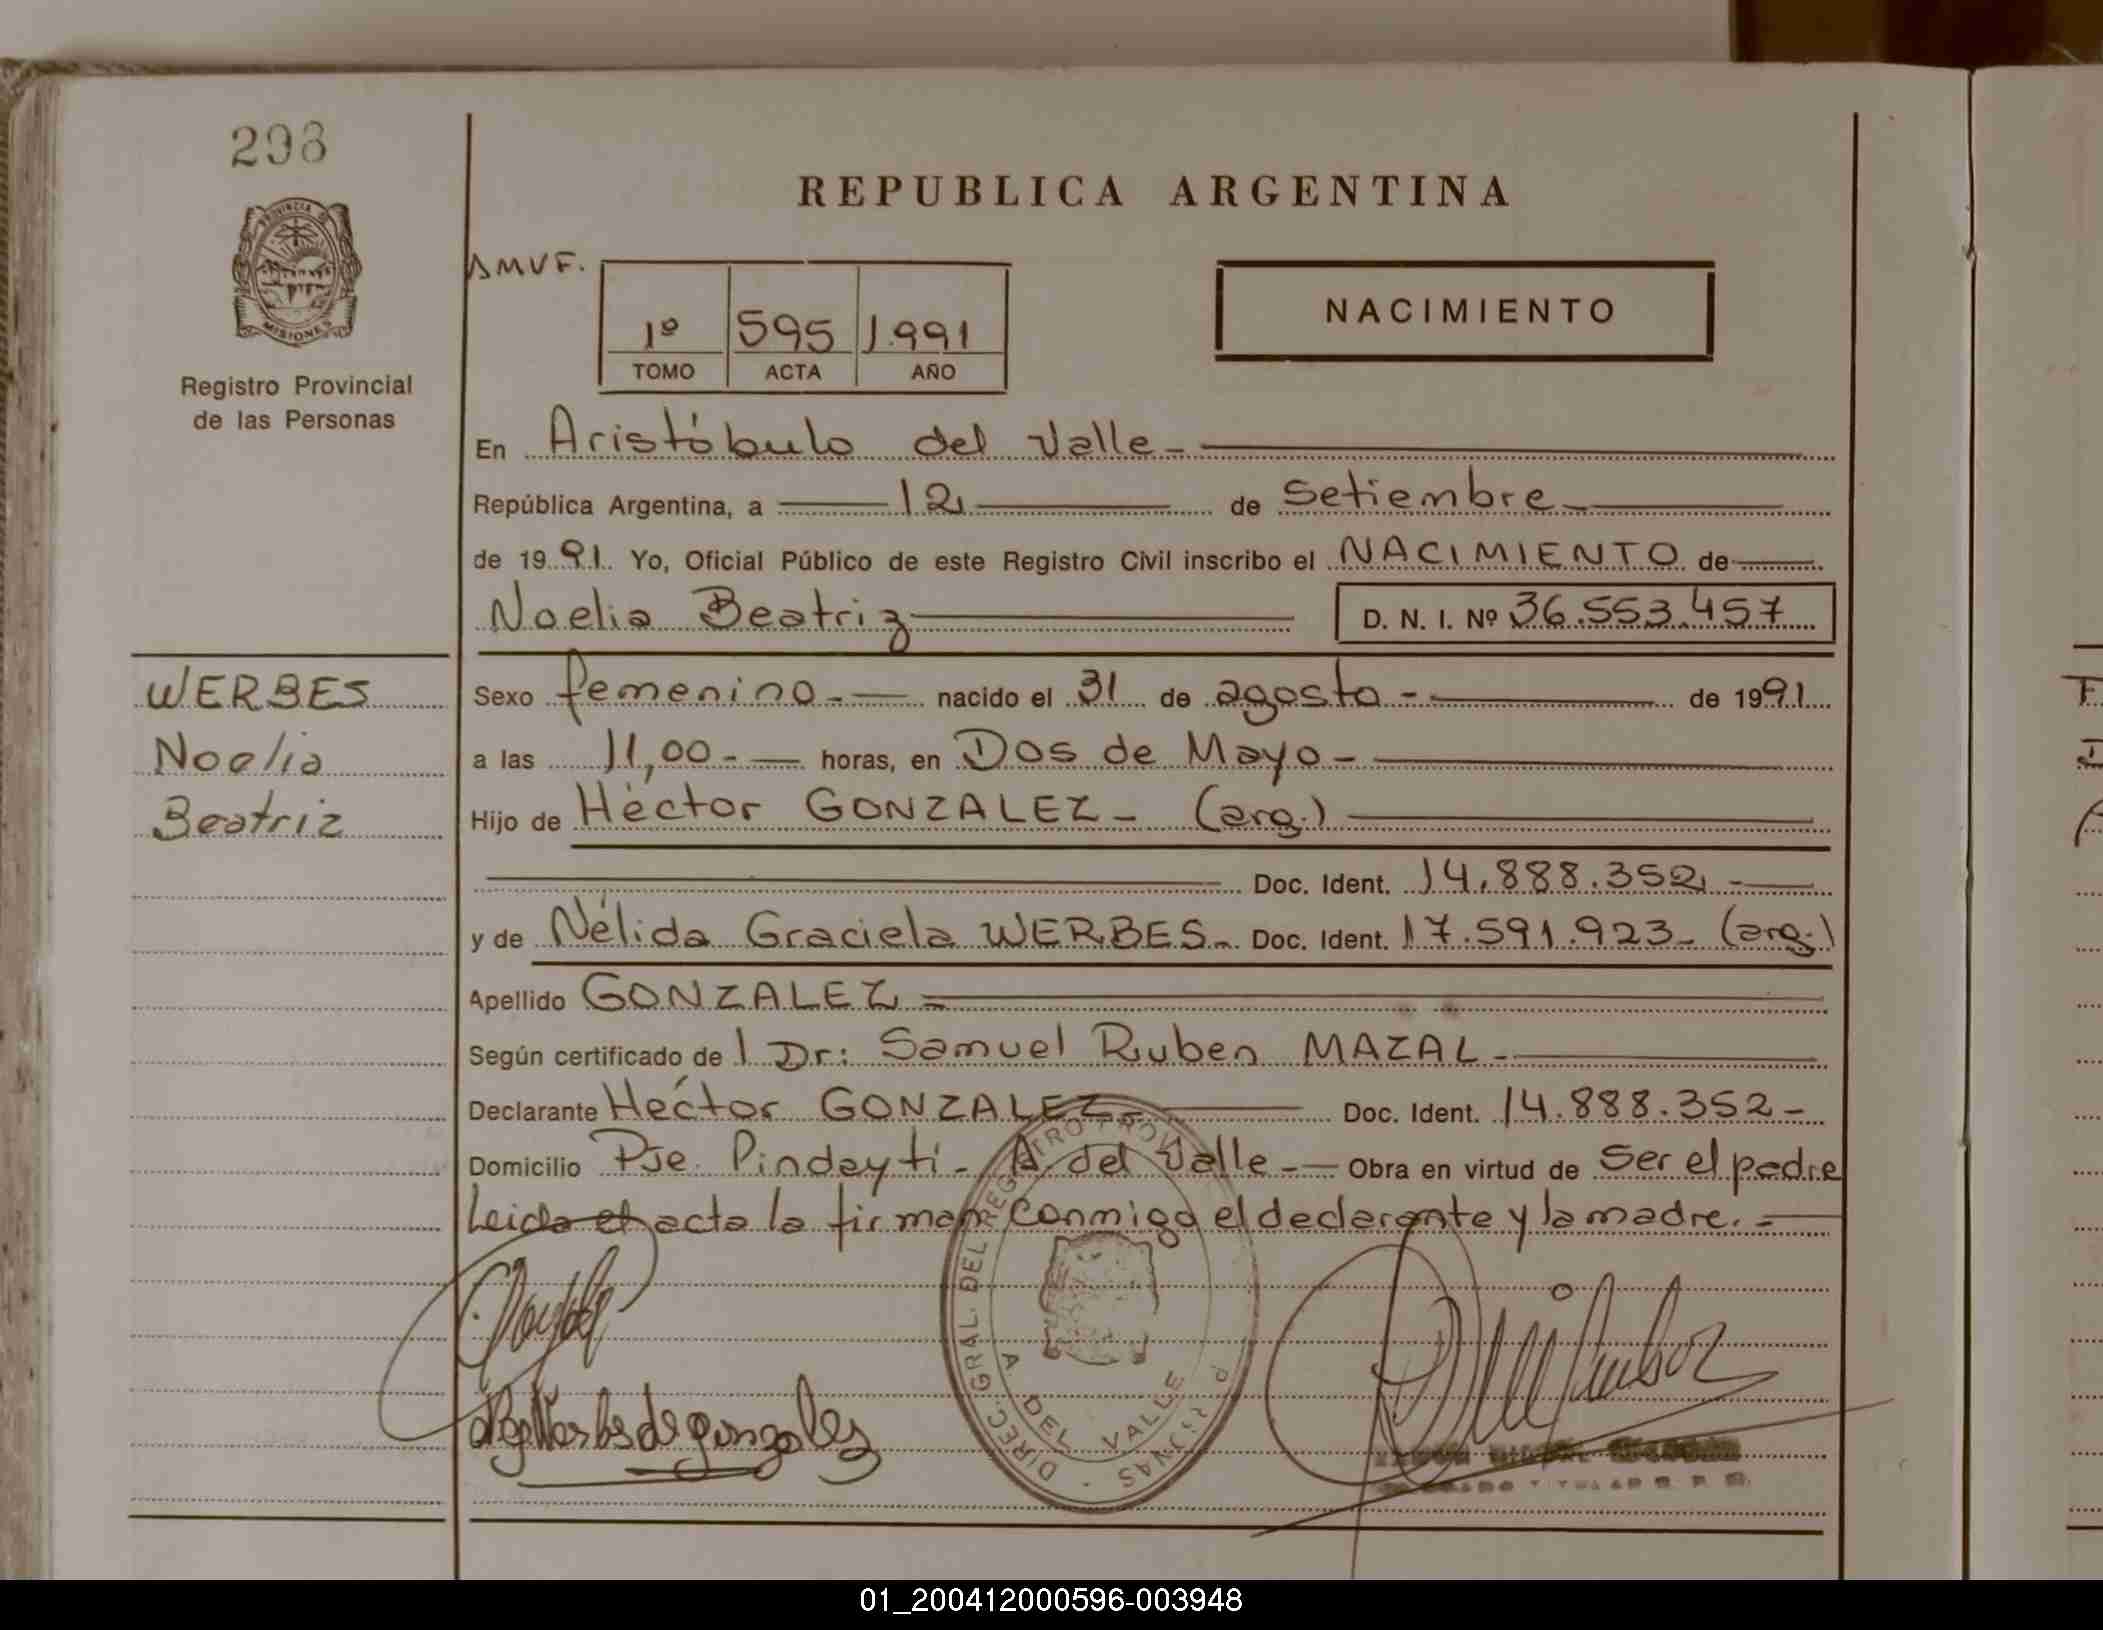 298
PROVINCIA DE
MISIONES
Registro Provincial
de las Personas
REPUBLICA ARGENTINA
AMVF.
1º 595 1.991
TOMO ACTA AÑO
NACIMIENTO
En Aristóbulo del Valle-
República Argentina, a 12 de Setiembre-
de 1991. Yo, Oficial Público de este Registro Civil inscribo el NACIMIENTO de
Noelia Beatriz D. N. I. Nº 36.553.457
WERBES
Noelia
Beatriz
Sexo femenino.- nacido el 31 de agosto - de 1991
a las 11,00- horas, en Dos de Mayo-
Hijo de Héctor GONZALEZ- (arg.)
Doc. Ident. 14.888.352 -
y de Nélida Graciela WERBES- Doc. Ident. 17.591.923- (arg.)
Apellido GONZALEZ-
Según certificado de l Dr: Samuel Ruben MAZAL-
Declarante Héctor GONZALEZ- Doc. Ident. 14.888.352-
Domicilio Pje. Pindayti- A. del Valle- Obra en virtud de Ser el padre
Leida el acta la firman conmigo el declarante y la madre.-
de gonzalez
DIREC. GRAL. DEL REGISTRO PROV.
A. DEL VALLE
01_200412000596-003948